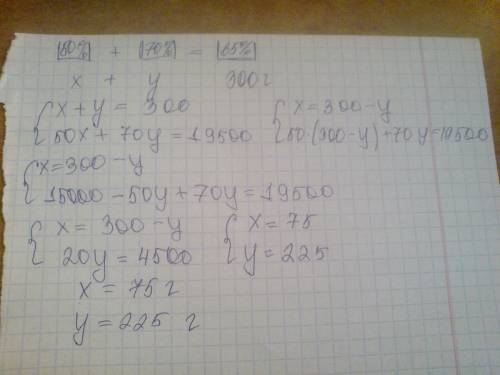 50% + 70% = 65%
x + y 300г
{x+y = 300
50x + 70y = 19500
{x = 300-y
50·(300-y)+70y=19500
{x=300-y
15000-50y+70y=19500
{x = 300-y
20y = 4500
{x = 75
y = 225
x = 75 г
y = 225 г